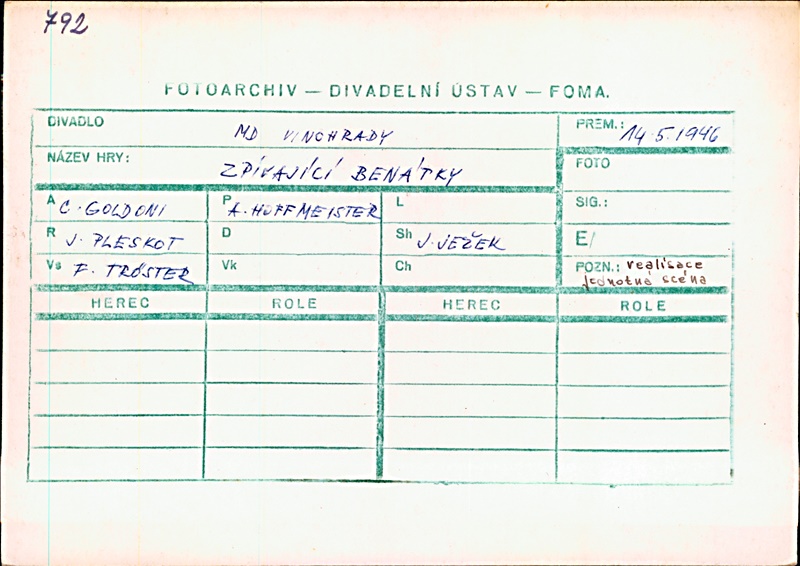 792
FOTOARCHIV — DIVADELNÍ ÚSTAV — FOMA.
DIVADLO MD VINOHRADY PREM.: 14.5.1946
NÁZEV HRY: ZPÍVAJÍCÍ BENÁTKY FOTO
A C. GOLDONI P A. HOFFMEISTER L SIG.:
R J. PLESKOT D Sh J. JEŽEK E/
Vs F. TRÖSTER Vk Ch POZN.: realisace
jednotná scéna
HEREC ROLE HEREC ROLE